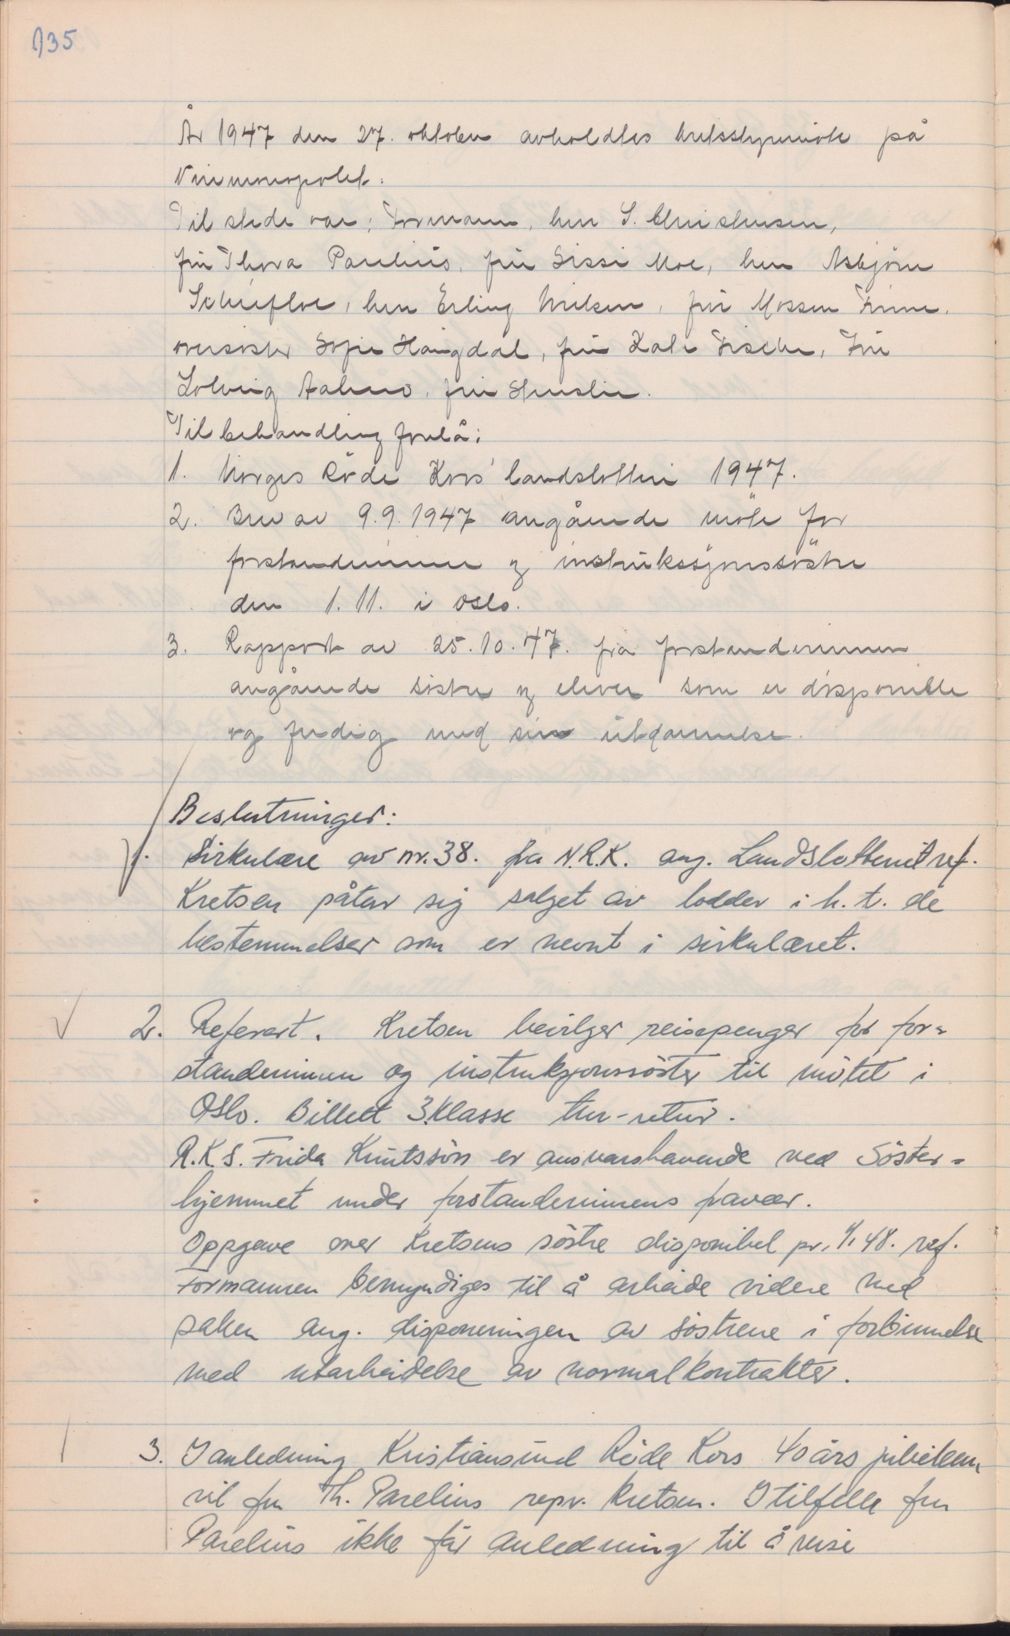 135
År 1947 den 27. oktober avholdtes kretsstyremöte på
Vinmonopolet.
Til stede var: Formann, herr S. Christensen,
frü Thora Parelius, frü Sissi Moe, herr Asbjørn
Schiefloe, herr Erling Nilsen, frü Mossen
oversöster Sofie Haugdal, frü Kate Fischer, Frü
Solveig frü
Til behandling forelå:
1. Norges Röde Kors' landslotteri 1947.
2. Brev av 9.9.1947 angående möte for
forstanderinner og instruksjonssöstre
den 1.11. i Oslo.
3. Rapport av 25.10.47. fra forstanderinnen
angående söstre og elever som er disponible
og ferdig med sin ütdannelse.
Beslutninger:
1. Sirkulære av nr. 38. fra N.R.K. ang. Landslotteriet ref.
Kretsen påtar sig salget av lodder i h. t. de
bestemmelser som er nevnt i sirkulæret.
2. Referert. Kretsen bevilger reisepenger for for=
standerinnen og instruksjonssöster til mötet i
Oslo. Billett 3. klasse tur-retur.
R.K.S. Frida Knutssön er ansvarshavende ved Söster=
hjemmet under forstanderinnens fravær.
Oppgave over Kretsens söstre disponibel pr. 1/1 48. ref.
Formannen bemyndiges til å arbeide videre med
saken ang. disponeringen av söstrene i forbinnelse
med utarbeidelse av normalkontrakter.
3. I anledning Kristiansund Röde Kors 40 års jubileum
vil fru Th. Parelius repr. kretsen. I tilfelle fru
Parelius ikke får anledning til å reise